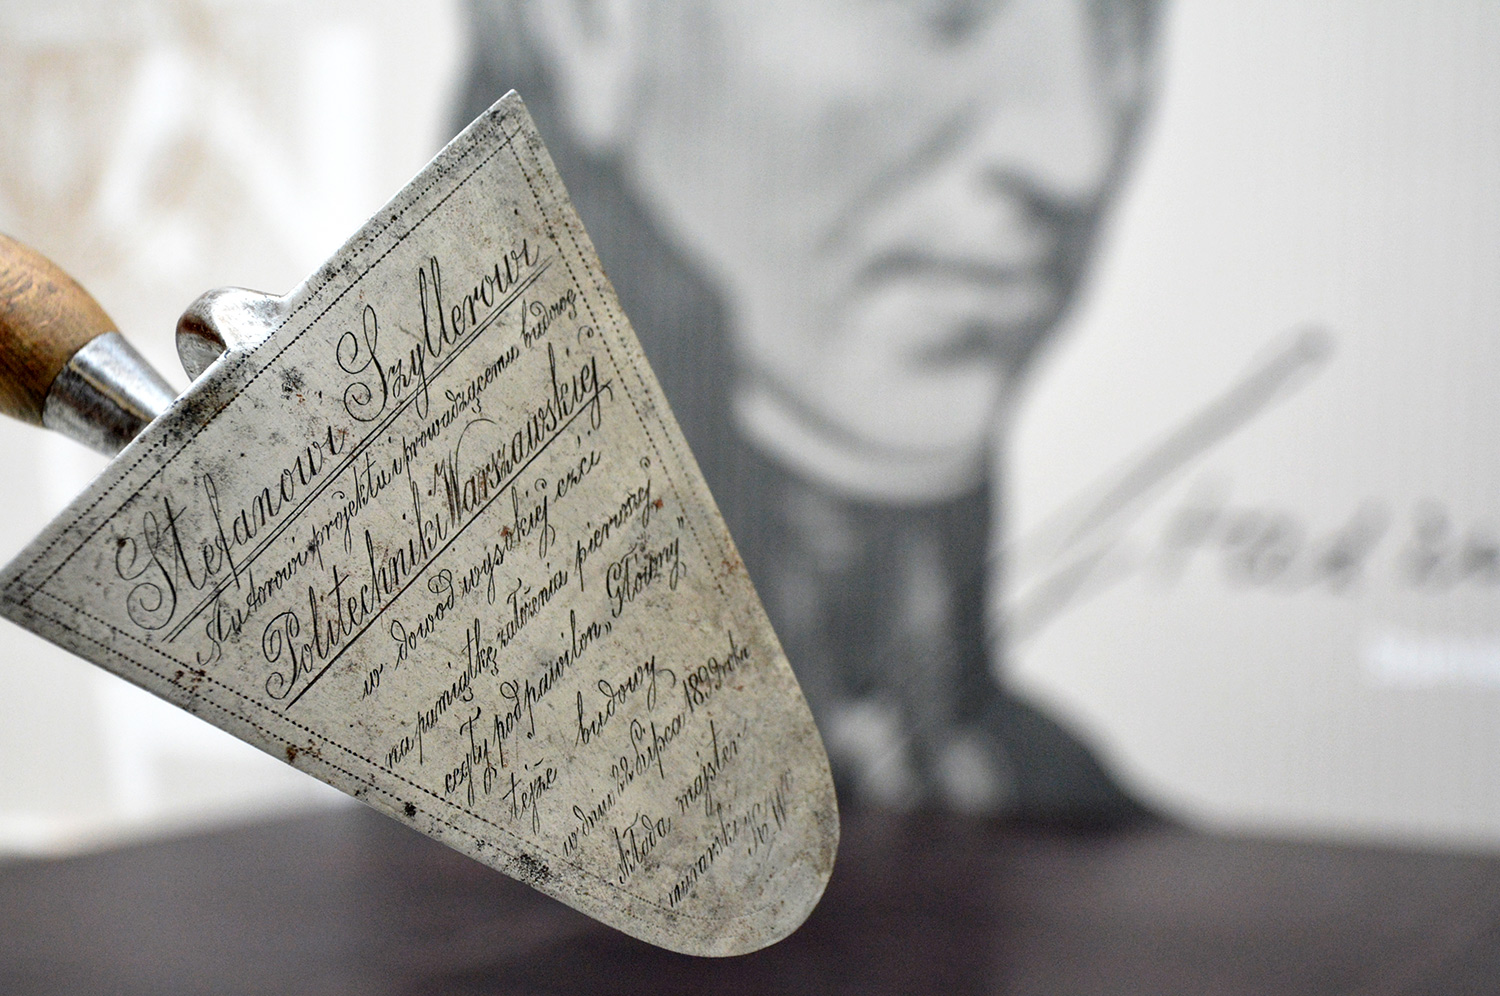 Stefanowi Szyllerowi
Autorowi projektu i prowadzącemu budowę
Politechniki Warszawskiéj
w dowód wysokiéj czci
na pamiątkę założenia pierwszéj
cegły pod pawilon „Główny”
téjże budowy
w dniu 22 Lipca 1899 roku
składa majster
murarski